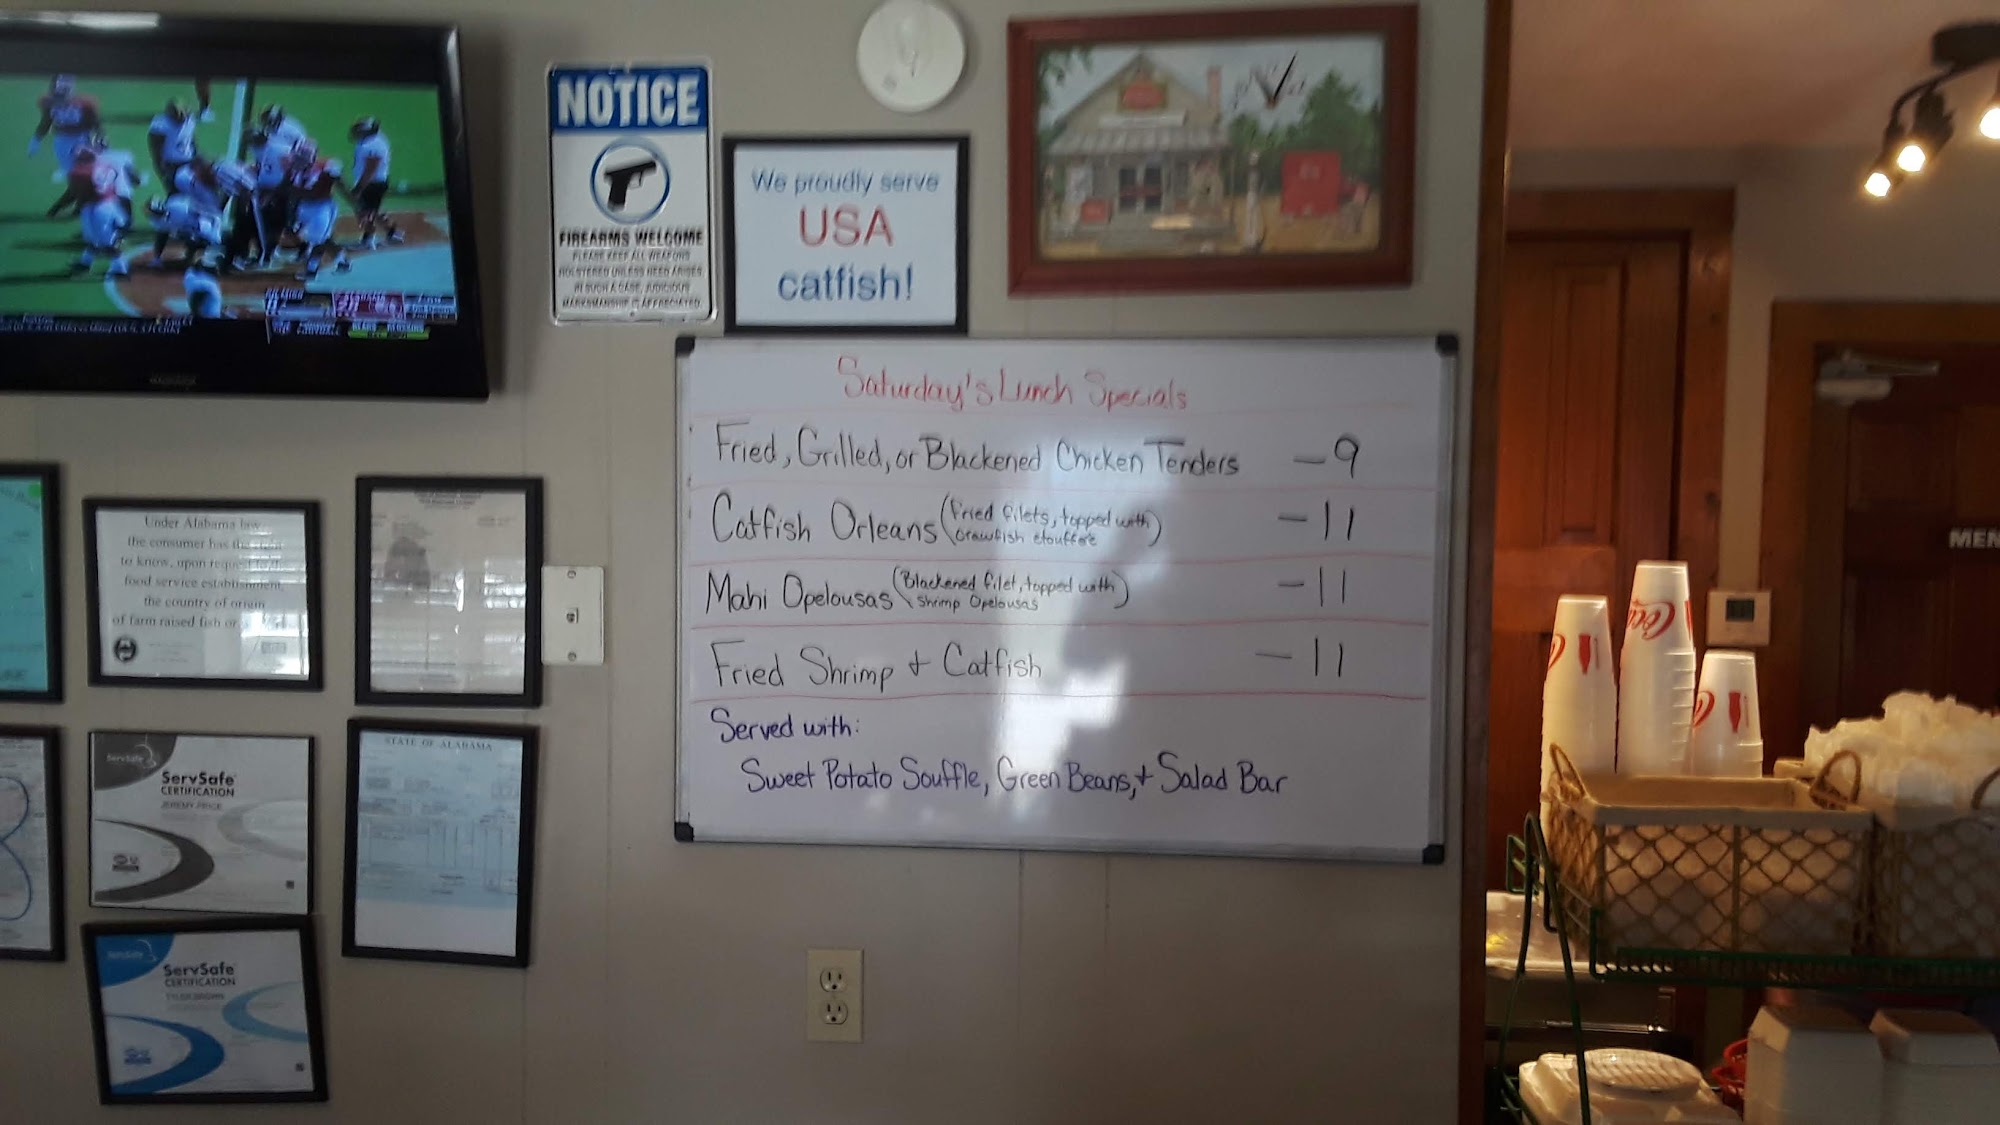 NOTICE
FIREARMS WELCOME
PLEASE KEEP ALL WEAPONS
HOLSTERED UNLESS NEED ARISES.
IN SUCH A CASE, JUDICIOUS
MARKSMANSHIP IS APPRECIATED.
We proudly serve
USA
catfish!
Saturday's Lunch Specials
Fried, Grilled, or Blackened Chicken Tenders - 9
Catfish Orleans (Fried filets, topped with
crawfish etouffee) - 11
Mahi Opelousas (Blackened filet, topped with
shrimp Opelousas) - 11
Fried Shrimp + Catfish - 11
Served with:
Sweet Potato Souffle, Green Beans, + Salad Bar
Under Alabama law,
the consumer has the
to know, upon request
food service establishment,
the country of origin
of farm raised fish or
ServSafe
ServSafe
CERTIFICATION
JEREMY PRICE
STATE OF ALABAMA
ServSafe
ServSafe
CERTIFICATION
TYLER BROWN
MEN
Coca